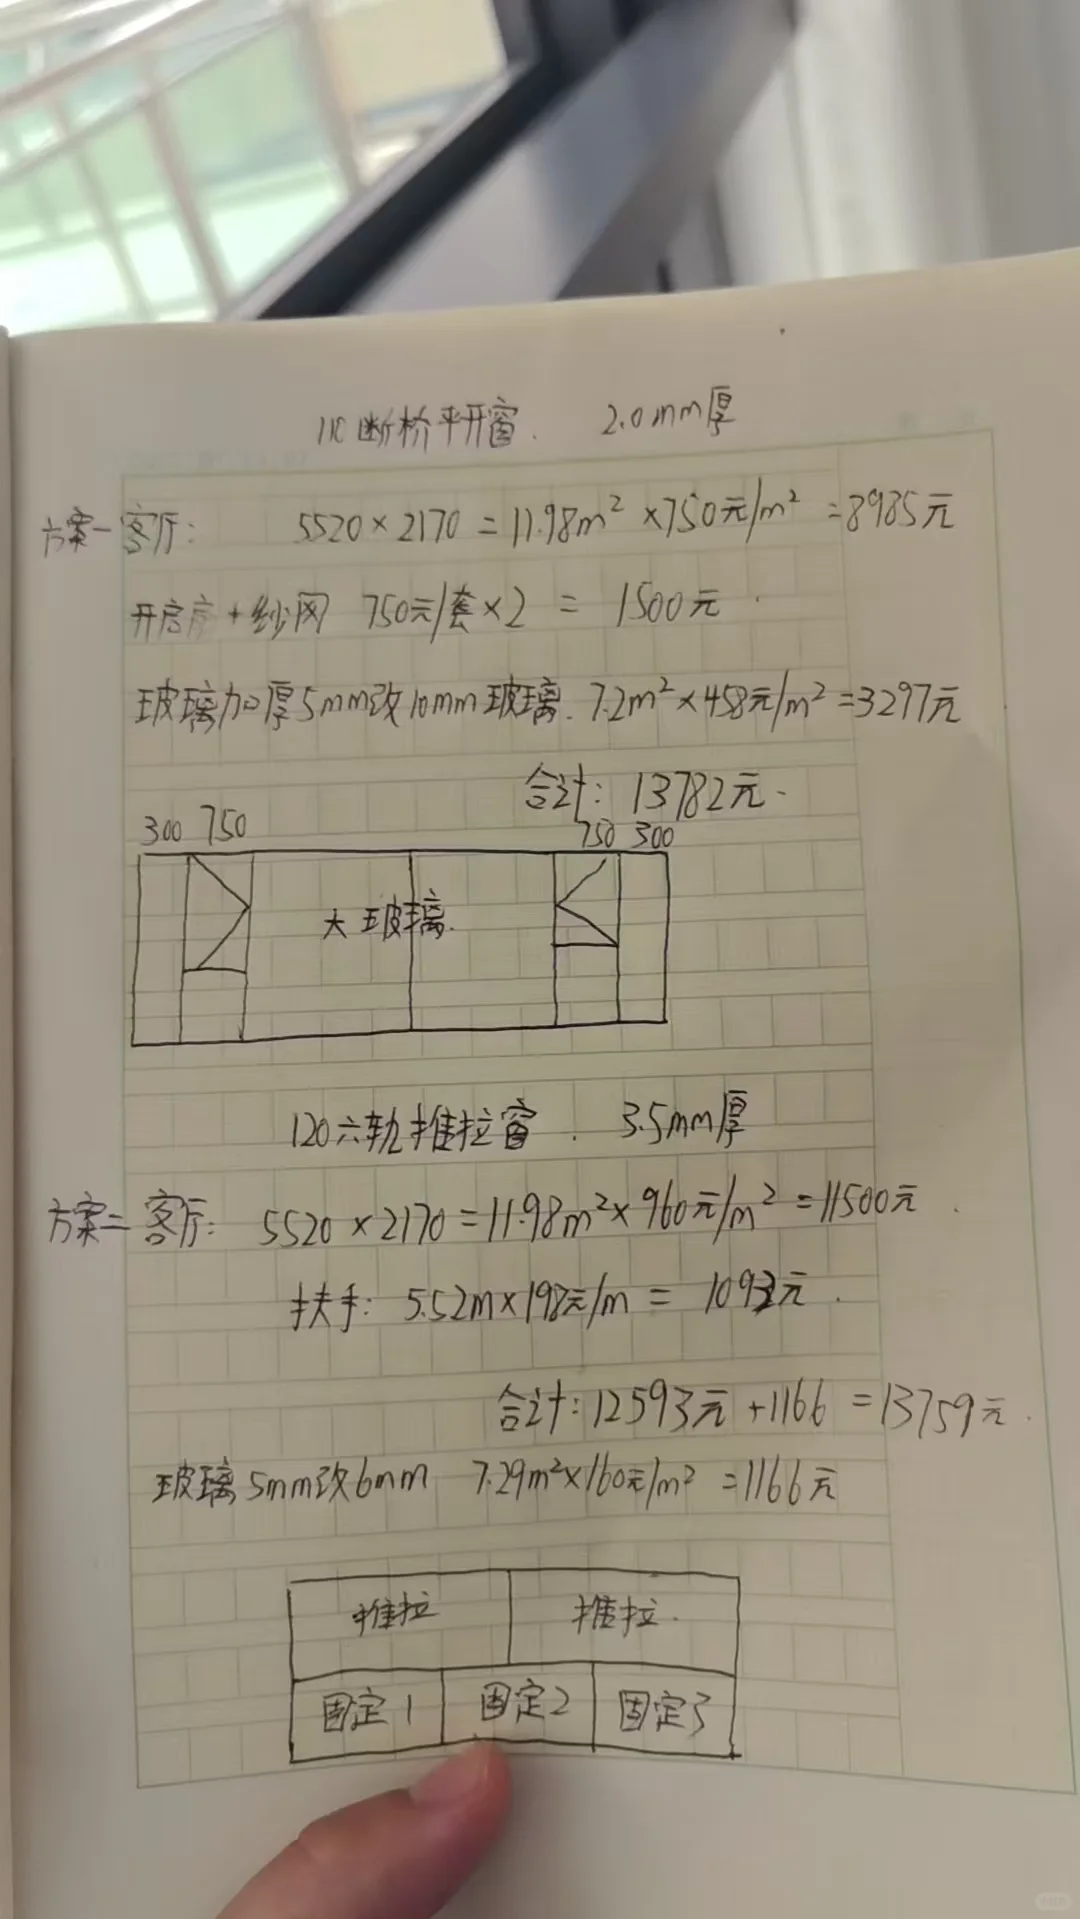 110断桥平开窗. 2.0mm厚
方案一 客厅: 5520×2170=11.98m²×750元/m²=8985元
开启扇+纱网 750元/套×2 = 1500元.
玻璃加厚5mm改10mm玻璃. 7.2m²×458元/m²=3297元
合计: 13782元.
300 750 750 300
大玻璃.
120六轨推拉窗. 3.5mm厚
方案二 客厅: 5520×2170=11.98m²×960元/m²=11500元.
扶手: 5.52m×198元/m = 1093元.
合计: 12593元+1166=13759元.
玻璃5mm改6mm 7.29m²×160元/m²=1166元
推拉 推拉.
固定1 固定2 固定3